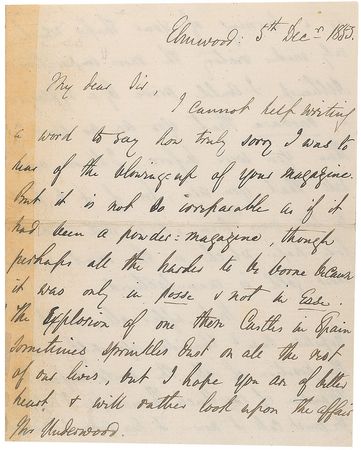 Elmwood: 5th Decr 1853.
My dear Sir,
I cannot help writing
a word to say how truly sorry I was to
hear of the blowing-up of your magazine.
But it is not so irreparable as if it
had been a powder-magazine, though
perhaps all the harder to be borne because
it was only in posse & not in Esse.
The Explosion of one those Castles in Spain
sometimes sprinkles dust on all the rest
of our lives, but I hope you are of better
heart & will rather look upon the affair
Mr Underwood.